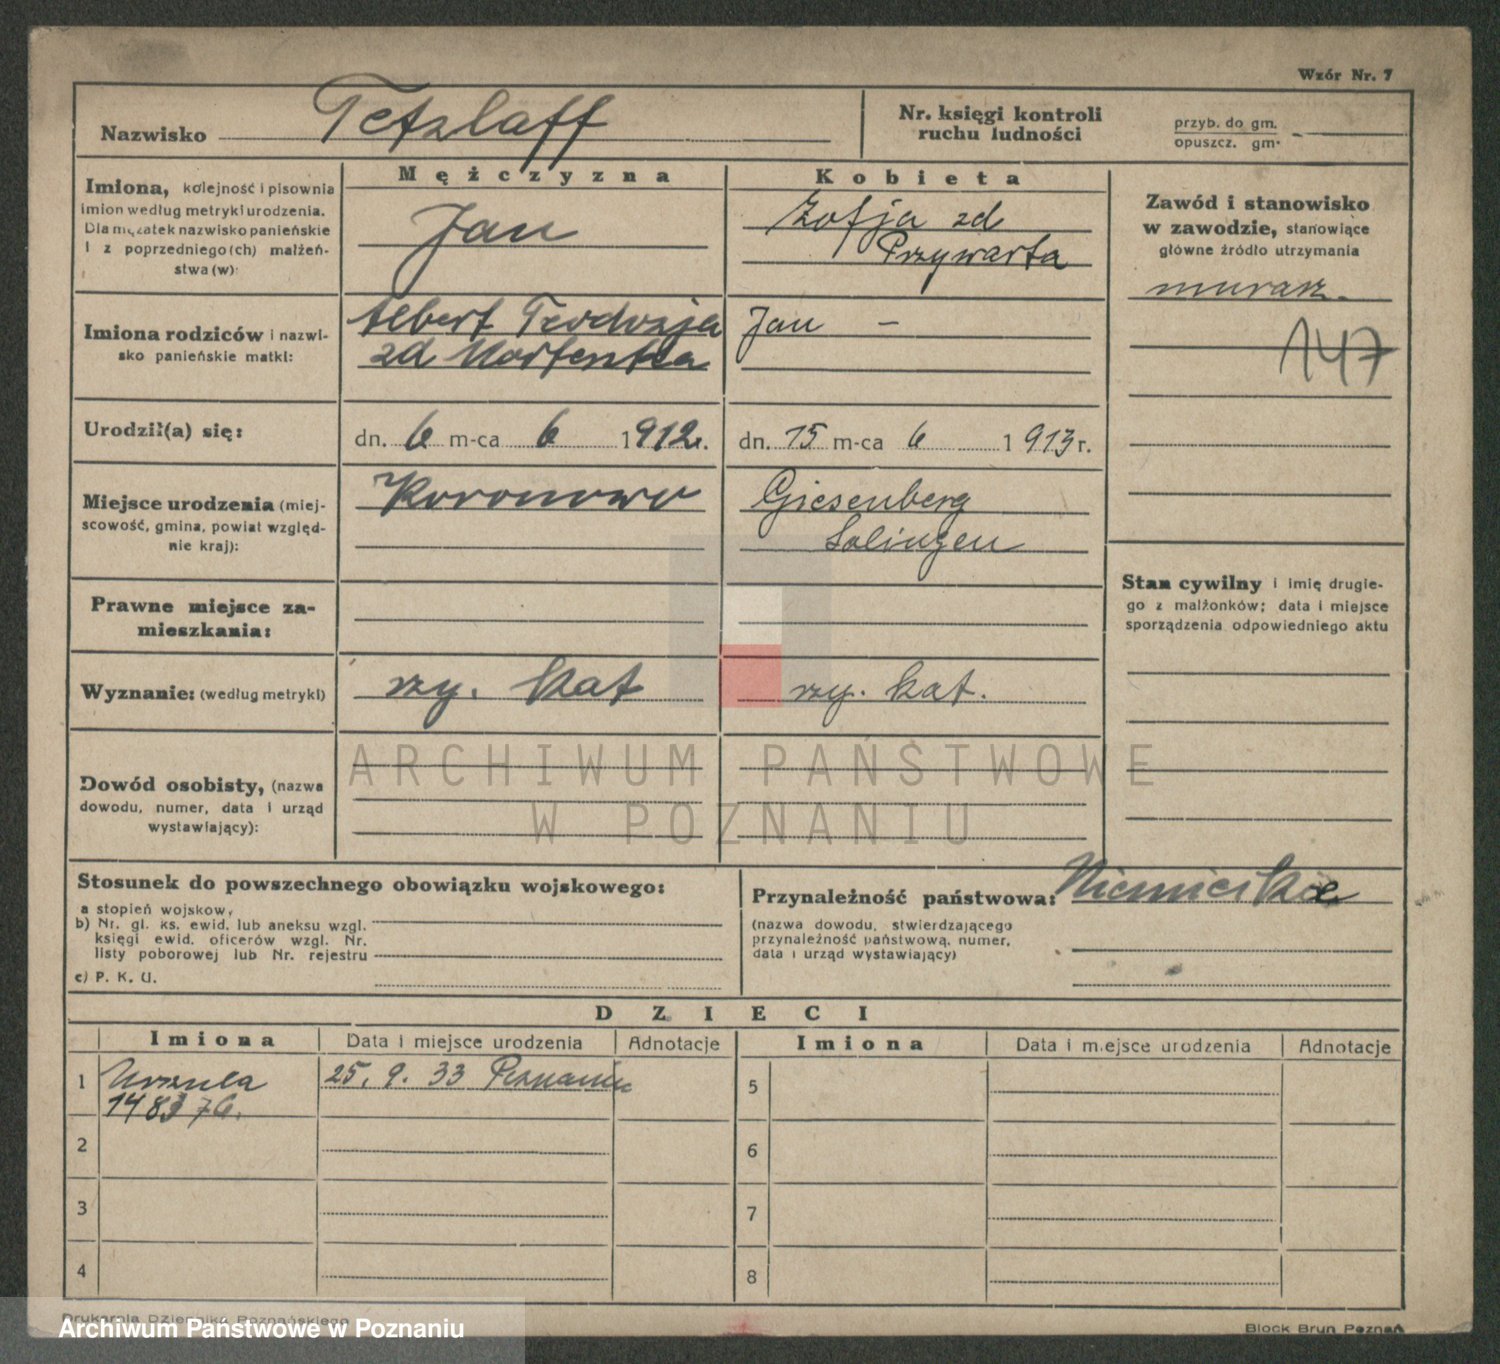 Wzór Nr. 7
Nazwisko Tetzlaff
Nr. księgi kontroli
ruchu ludności
przyb. do gm.
opuszcz. gm.
Mężczyzna
Kobieta
Imiona, kolejność i pisownia
imion według metryki urodzenia.
Dla mężatek nazwisko panieńskie
i z poprzedniego (ch) małżeń-
stwa (w):
Jan
Zofja zd
Przywarta
Zawód i stanowisko
w zawodzie, stanowiące
główne źródło utrzymania
murarz.
147
Imiona rodziców i nazwi-
sko panieńskie matki:
Albert Teodozja
zd
Jan —
Urodził(a) się:
dn. 6 m-ca 6 1912 r.
dn. 15 m-ca 6 1913 r.
Miejsce urodzenia (miej-
scowość, gmina, powiat względ-
nie kraj):
Koronowo
Giesenberg
Solingen
Prawne miejsce za-
mieszkania:
Stan cywilny i imię drugie-
go z małżonków; data i miejsce
sporządzenia odpowiedniego aktu
Wyznanie: (według metryki)
rzy. kat
rzy. kat.
Dowód osobisty, (nazwa
dowodu, numer, data i urząd
wystawiający):
ARCHIWUM PAŃSTWOWE
W POZNANIU
Stosunek do powszechnego obowiązku wojskowego:
a stopień wojskow,
b) Nr. gl. ks. ewid. lub aneksu wzgl.
księgi ewid. oficerów wzgl. Nr.
listy poborowej lub Nr. rejestru
c) P. K. U.
Przynależność państwowa: Niemieckie
(nazwa dowodu, stwierdzającego
przynależność państwową, numer,
data i urząd wystawiający)
DZIECI
Imiona Data i miejsce urodzenia Adnotacje Imiona Data i miejsce urodzenia Adnotacje
1 Urszula 25. 9. 33 Poznaniu 5
148376.
2 6
3 7
4 8
Drukarnia Dziennika Poznańskiego
Archiwum Państwowe w Poznaniu
Block Brun Poznań